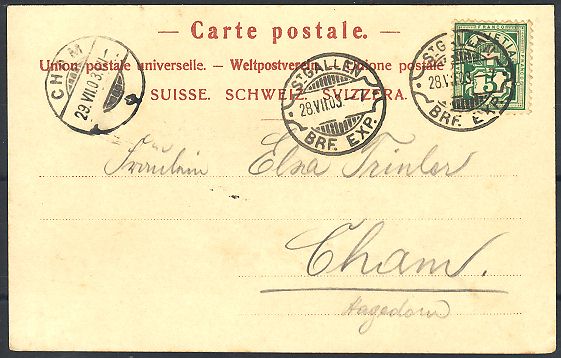 — Carte postale. —
Union postale universelle. — Weltpostverein. — Unione postale
SUISSE. SCHWEIZ. SVIZZERA.
CHAM
29.VII.03.
ST. GALLEN
28.VII.03
BRF. EXP.
ST. GALLEN
28.VII.03
BRF. EXP.
FRANCO
5
Fräulein Elsa Trinler
Cham.
Hagedorn